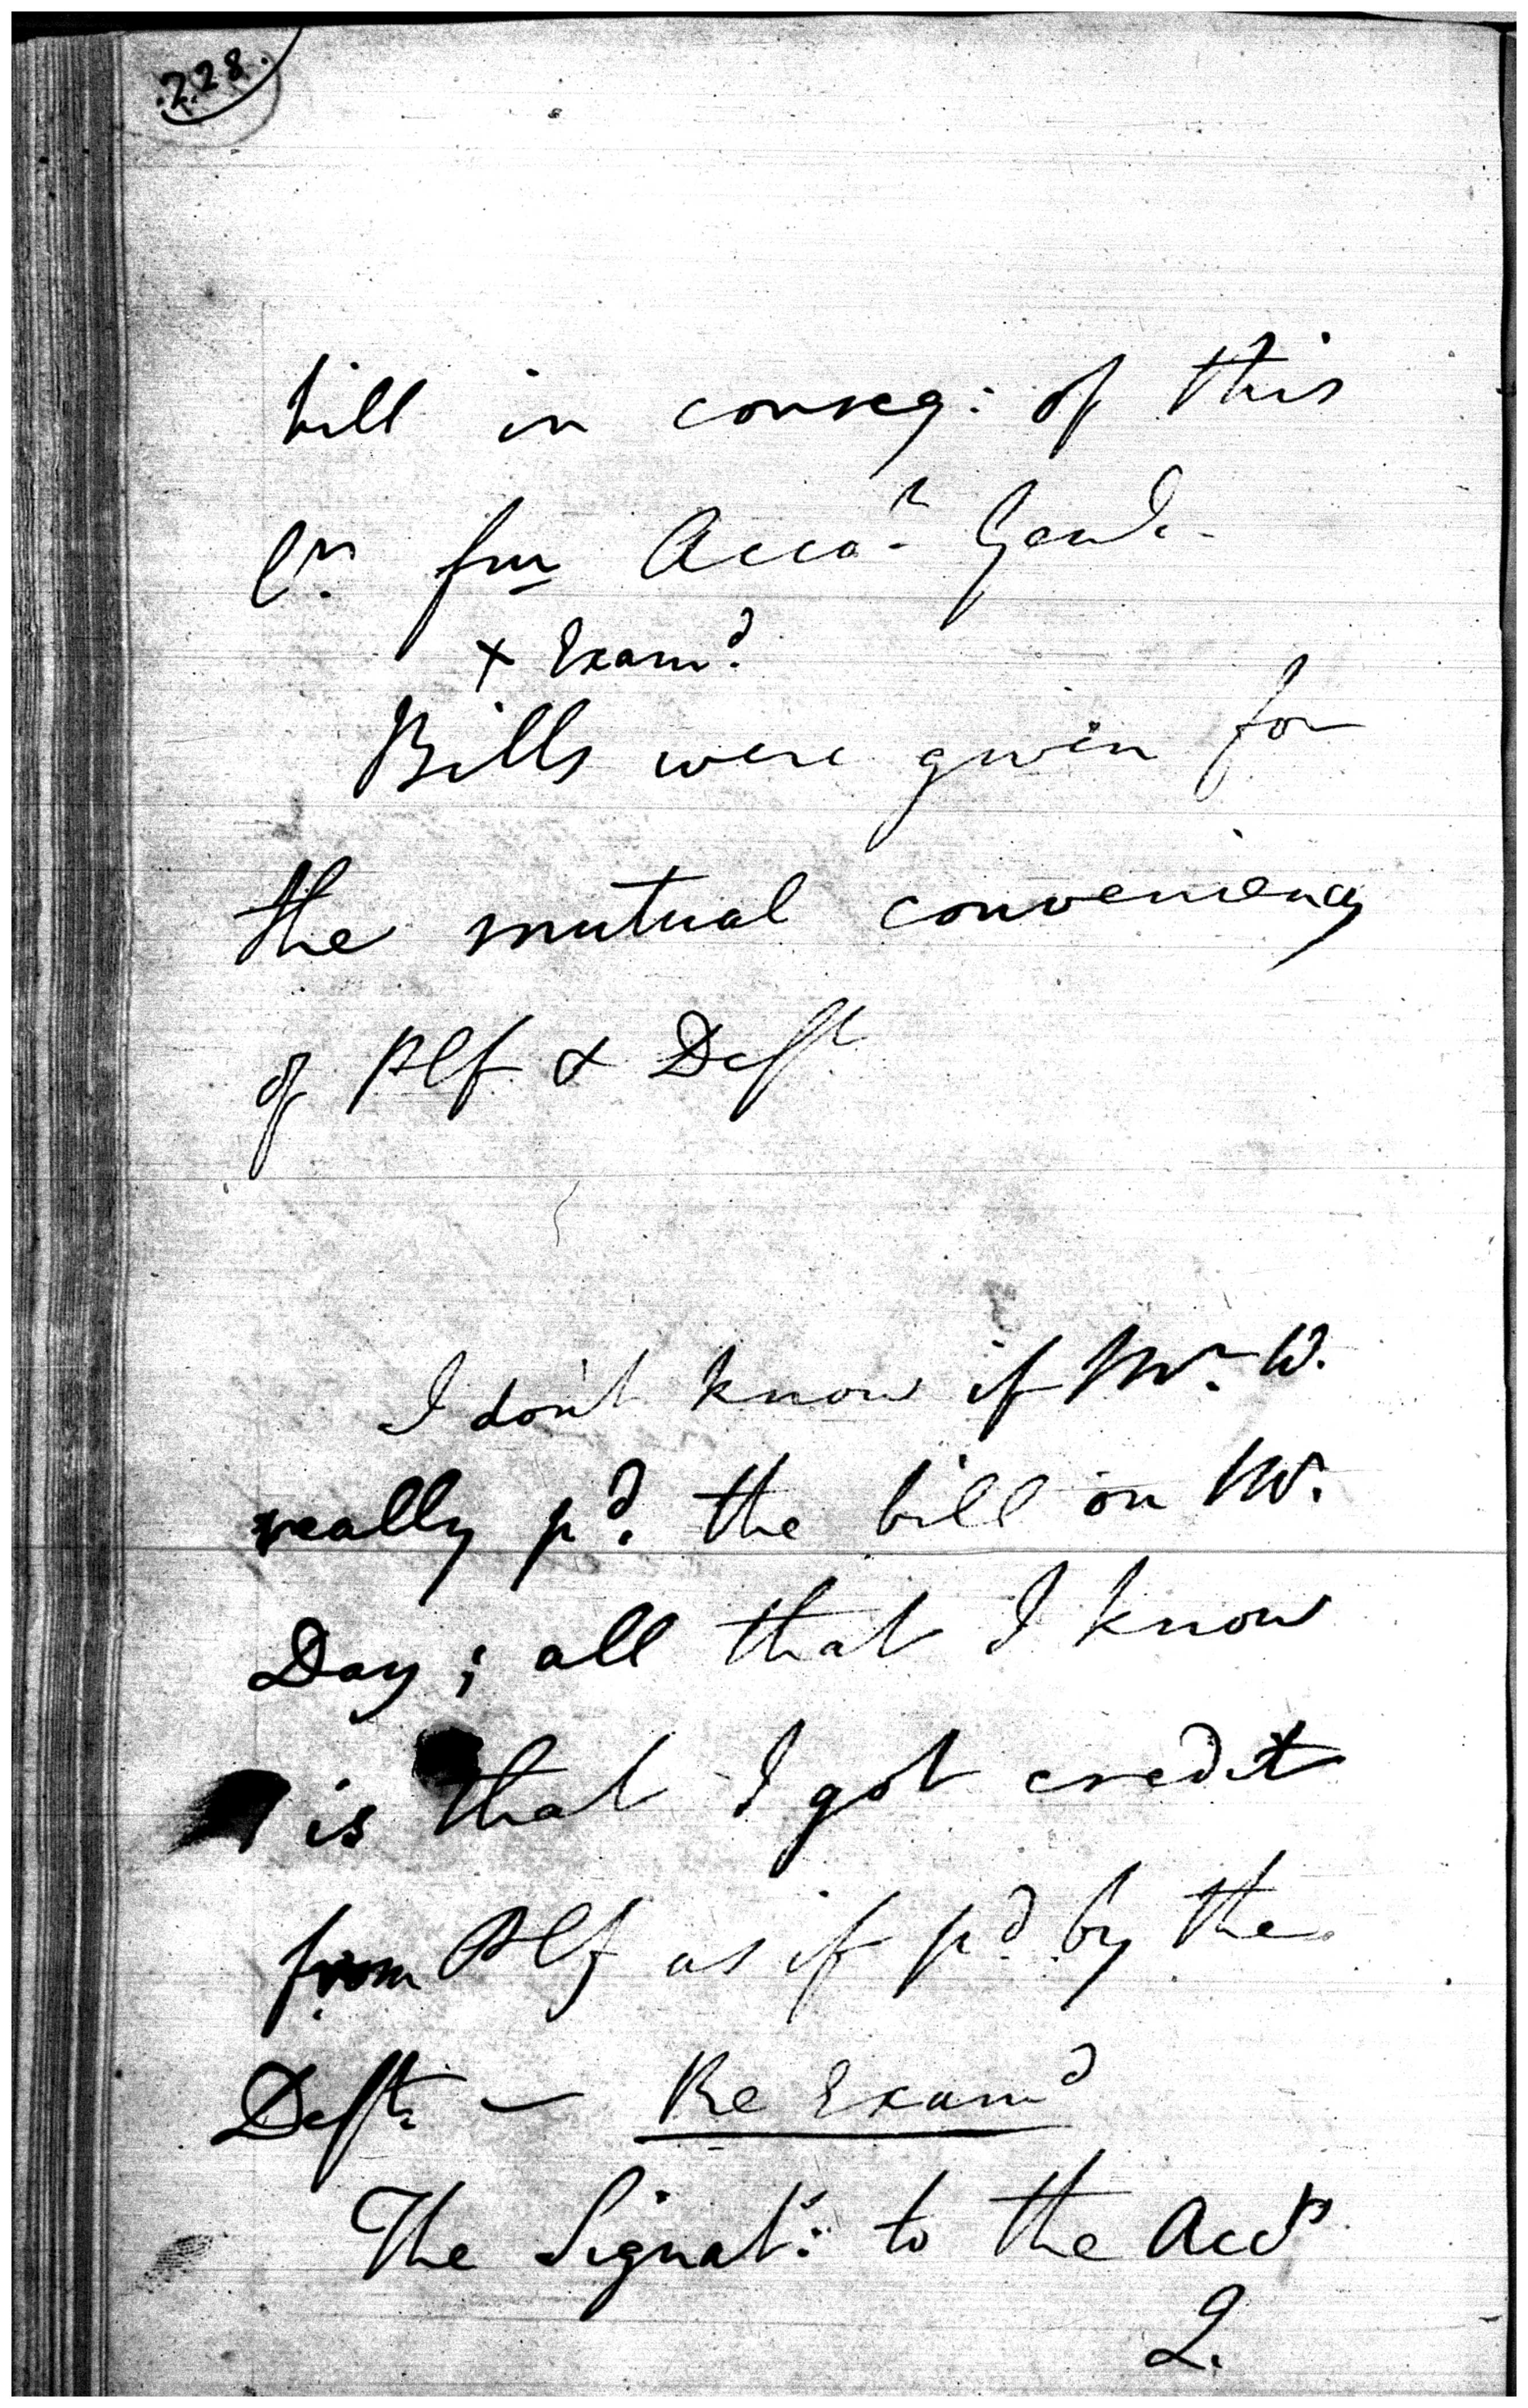 .228.
bill in conseq: of this
lr. fm Acco.t Genl.
x Examd.
Bills were given for
the mutual conveniency
of Plf & Deft
I don't know if Mr. W.
really pd. the bill on Mr.
Day; all that I know
is that I got credit
from Plf as if pd by the
Deft. — Re Examd
The Signat.: to the Accts
2.